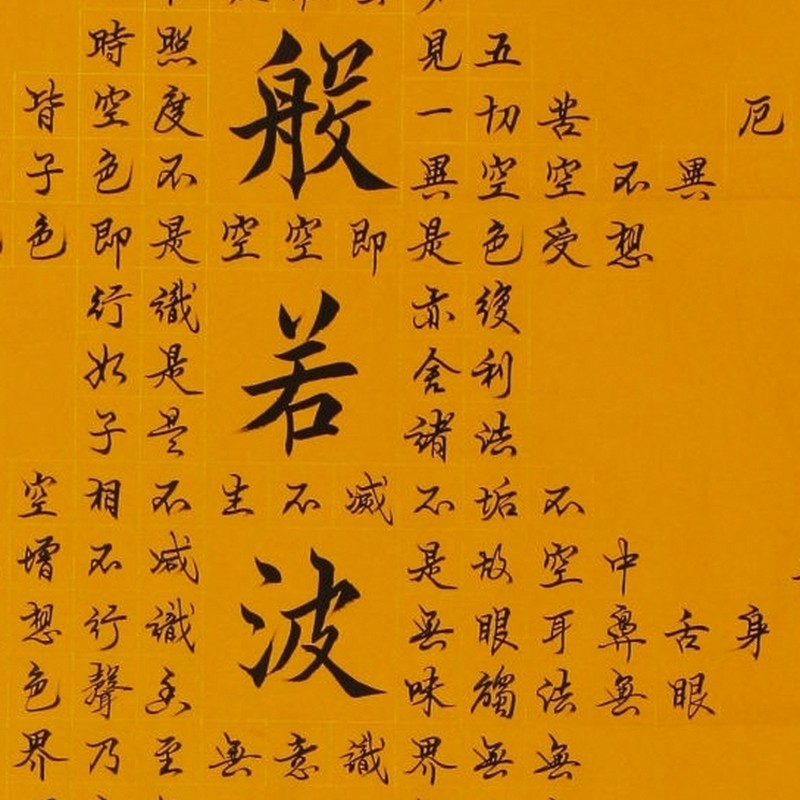 般若波
時照見五
皆空度一切苦厄
子色不異空空不異
色即是空空即是色受想
行識亦復
如是舍利
子是諸法
空相不生不滅不垢不
增不減是故空中
想行識無眼耳鼻舌身
色聲香味觸法無眼
界乃至無意識界無無